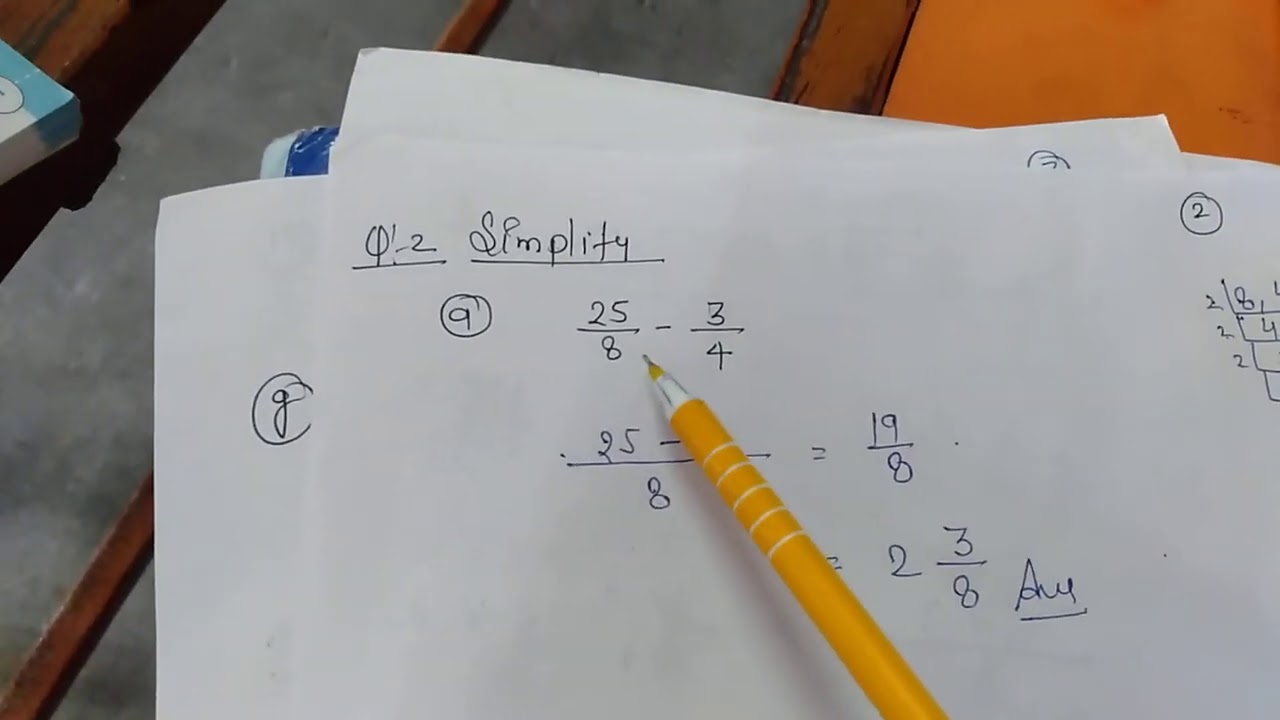 Q.2 Simplify
a 25/8 - 3/4
g
25 -
8
= 19/8
= 2 3/8 Ans
2
2 | 8, 4
2 | 4
2